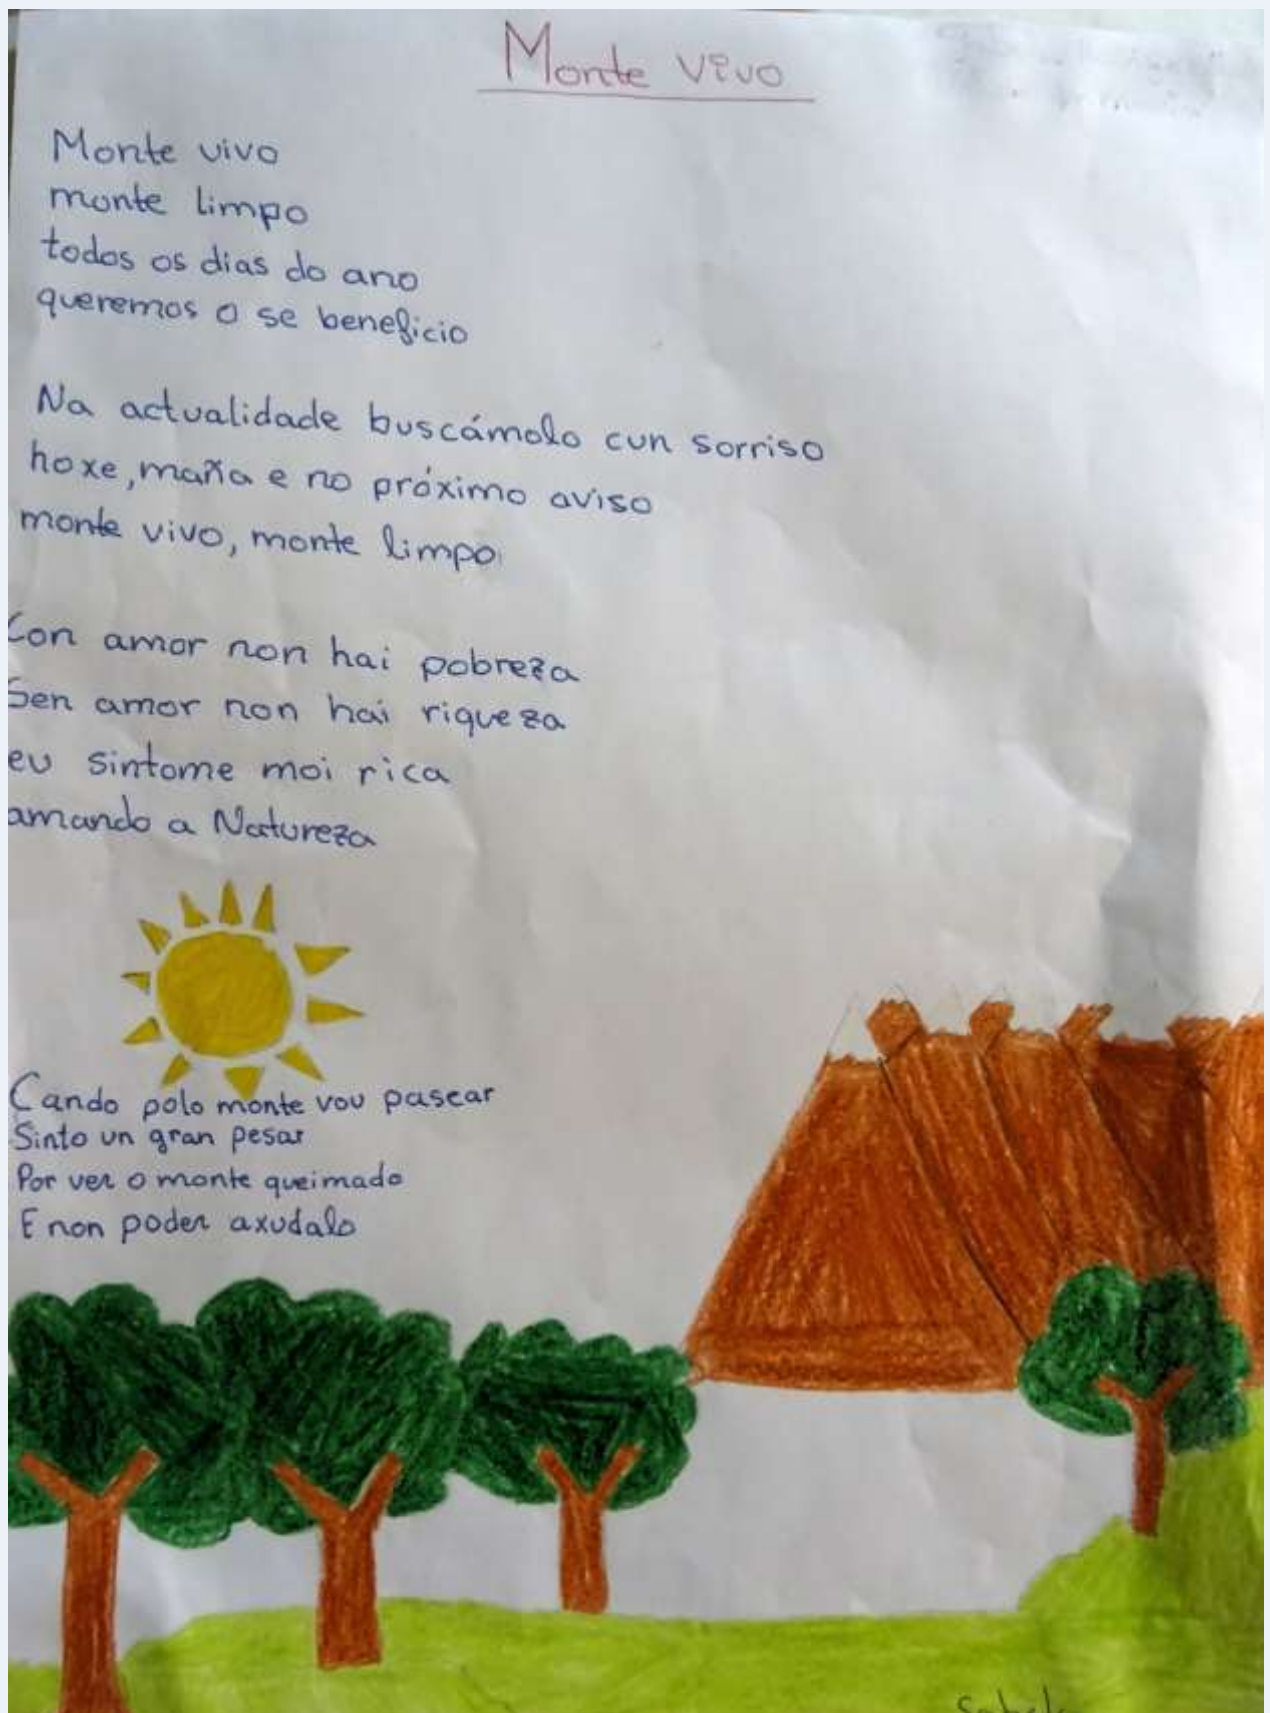 Monte vivo
Monte vivo
monte limpo
todos os dias do ano
queremos o se beneficio
Na actualidade buscámolo cun sorriso
hoxe, mañá e no próximo aviso
monte vivo, monte limpo
Con amor non hai pobreza
Sen amor non hai riqueza
eu sintome moi rica
amando a Natureza
Cando polo monte vou pasear
Sinto un gran pesar
Por ver o monte queimado
E non poder axudalo